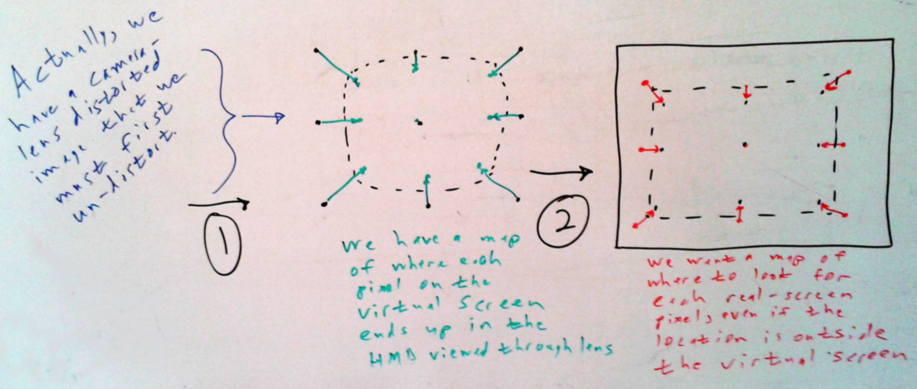 Actually, we
have a camera-
lens distorted
image that we
must first
un-distort.
1
we have a map
of where each
pixel on the
virtual screen
ends up in the
HMD viewed through lens
2
we want a map of
where to look for
each real-screen
pixel, even if the
location is outside
the virtual screen